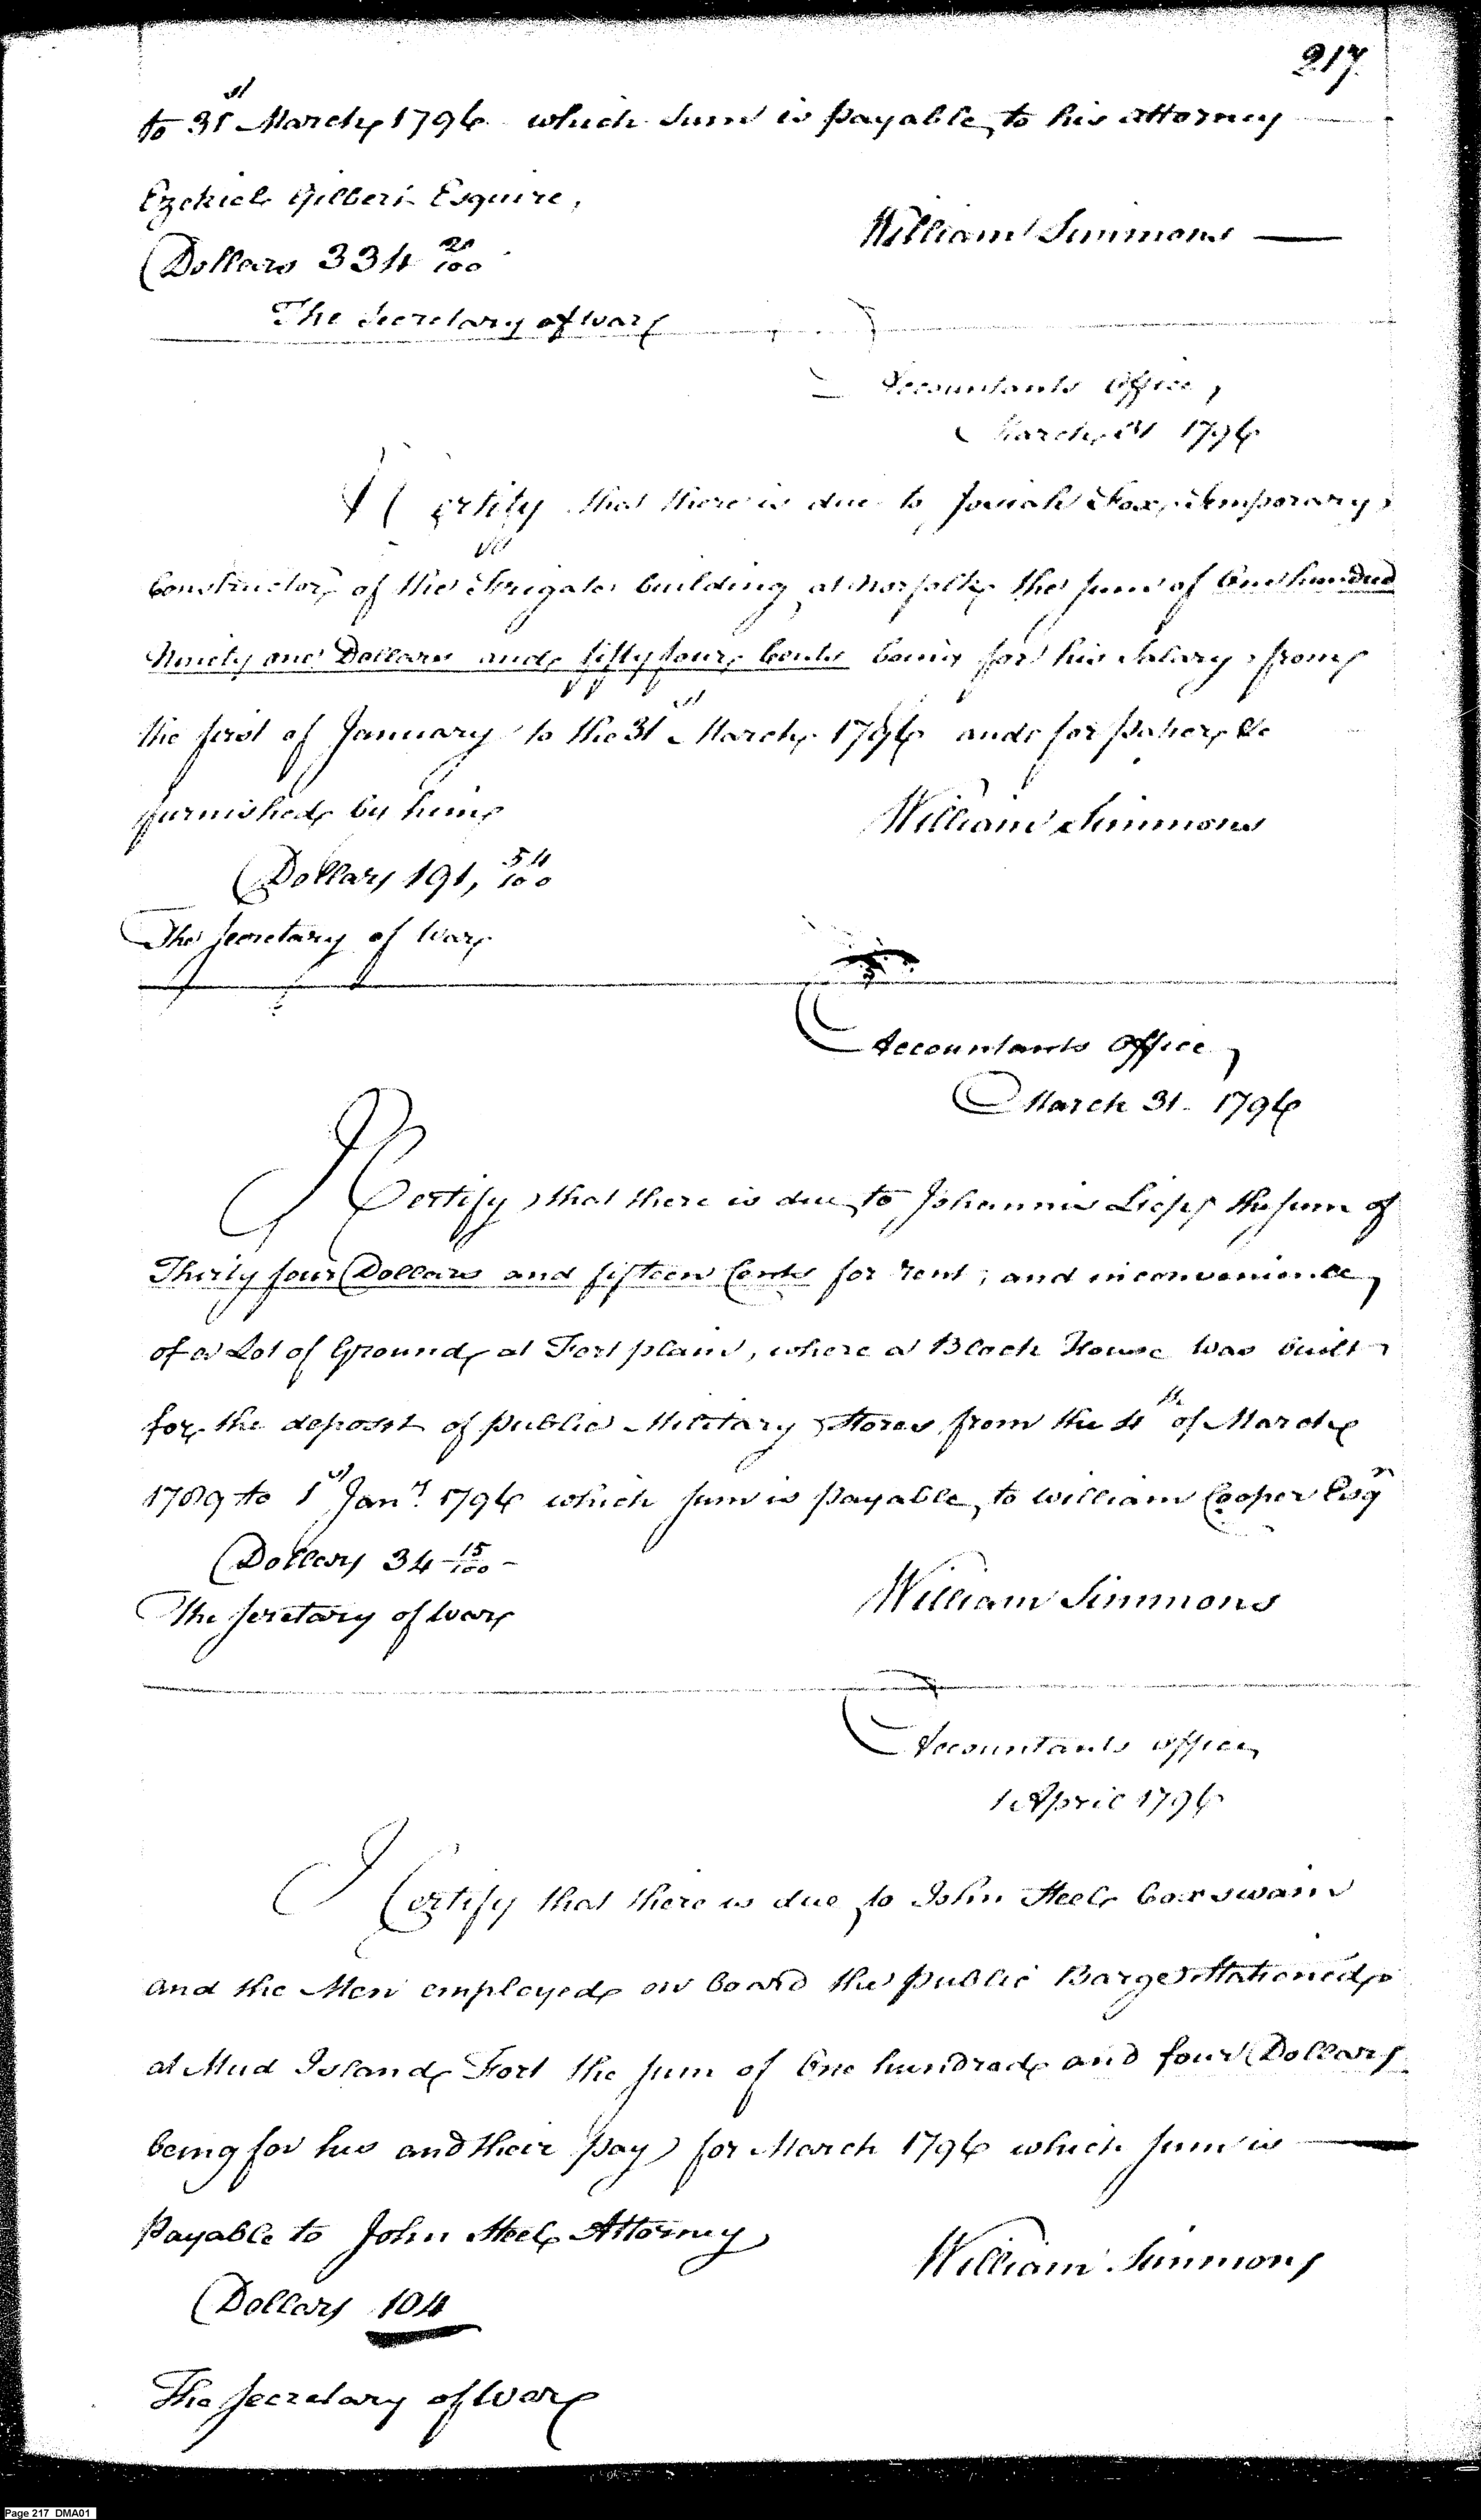 217.
to 31st March 1796 which Sum is payable to his attorney
Ezekiel Gilbert Esquire,
William Simmons
Dollars 334 20/100
The Secretary of War
Accountants Office,
March 31 1796
I Certify that there is due to Josiah Fox, temporary
Constructor of the Frigate building at Norfolk the sum of One hundred
Ninety one Dollars and fifty four Cents being for his Salary from
the first of January to the 31st March 1796 and for paper &c
furnished by him
William Simmons
Dollars 191, 54/100
The Secretary of War
Accountants Office,
March 31. 1796
I Certify that there is due to Johannis the sum of
Thirty four Dollars and fifteen Cents for rent, and inconvenience,
of a Lot of Ground at Fort plain, where a Block House was built
for the deposit of public Military Stores from the 4th of March
1789 to 1st Jany. 1796 which sum is payable to William Cooper Esqr
Dollars 34 15/100
William Simmons
The Secretary of War
Accountants office,
1 April 1796
I Certify that there is due to John Steel Coxswain
and the Men employed on board the public Barge Stationed
at Mud Island Fort the sum of One hundred and four Dollars
being for his and their pay for March 1796 which sum is
Payable to John Steel Attorney
William Simmons
Dollars 104
The Secretary of War
Page 217 DMA01